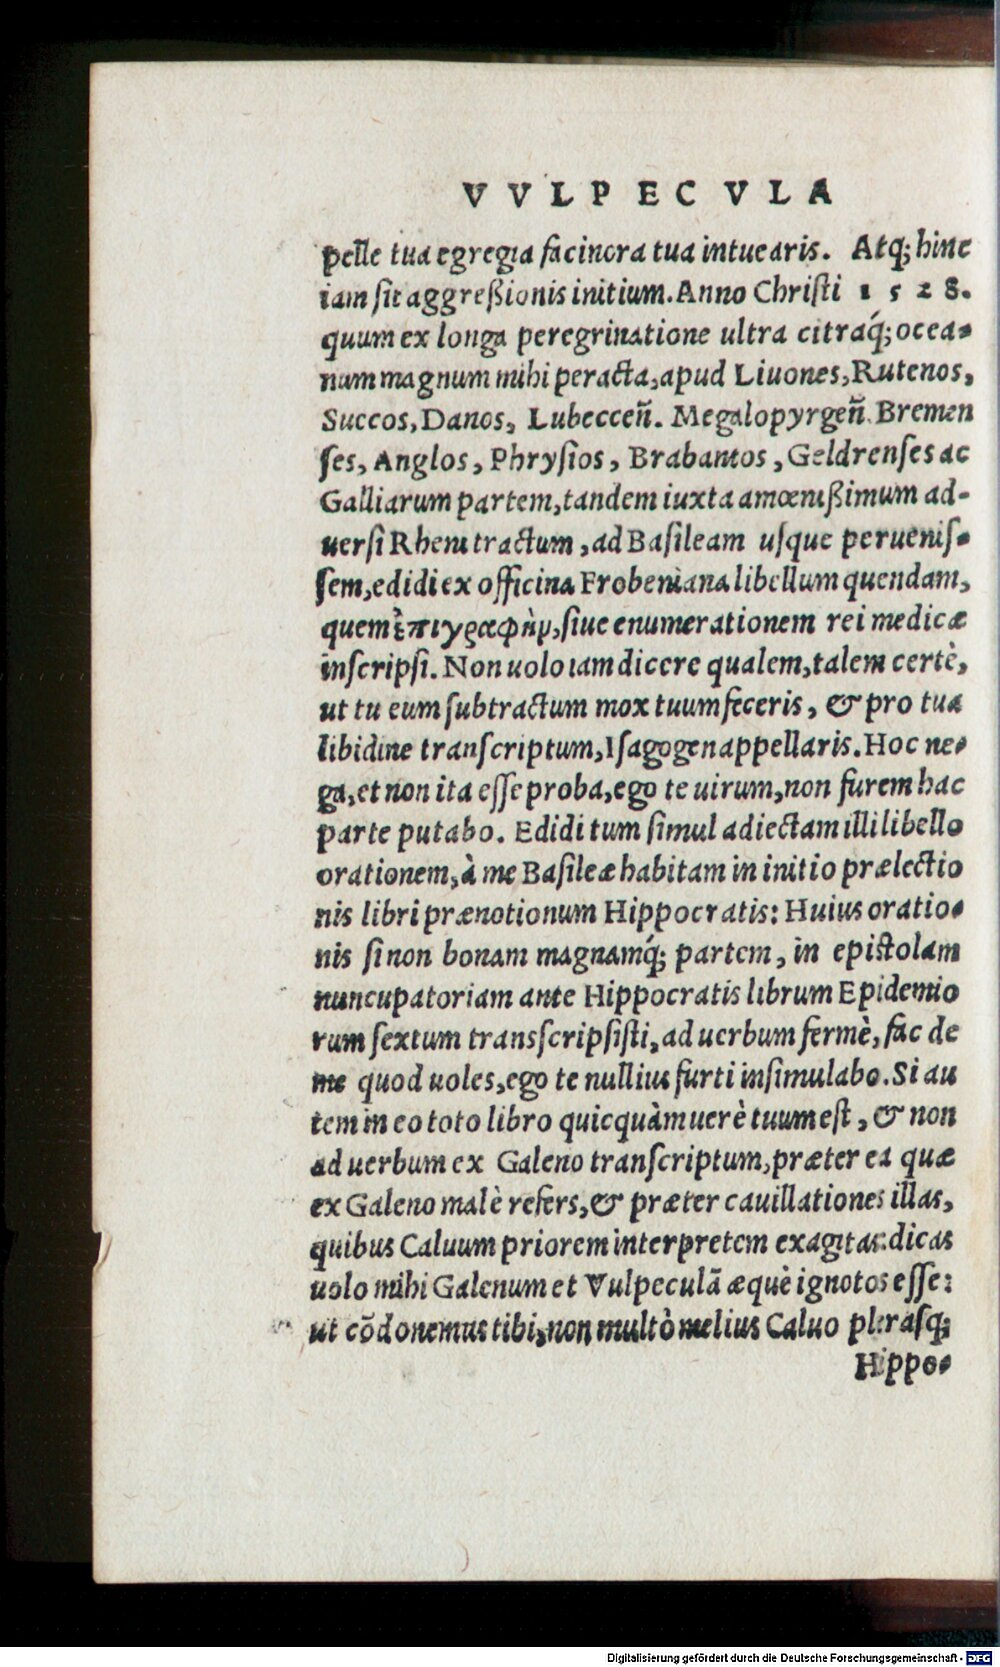 VVLPECVLA
pelle tua egregia facinora tua intuearis. Atq; hinc
iam sit aggreßionis initium. Anno Christi 1528.
quum ex longa peregrinatione ultra citraq́; ocea-
num magnum mihi peracta, apud Liuones, Rutenos,
Succos, Danos, Lubecceñ. Megalopyrgeñ. Bremen
ses, Anglos, Phrysios, Brabantos, Geldrenses ac
Galliarum partem, tandem iuxta amœnißimum ad-
uersi Rheni tractum, ad Basileam usque peruenis-
sem, edidi ex officina Frobeniana libellum quendam,
quem ἐπιγραφὴν, siue enumerationem rei medicæ
inscripsi. Non uolo iam dicere qualem, talem certè,
ut tu eum subtractum mox tuum feceris, & pro tua
libidine transcriptum, Isagogen appellaris. Hoc ne-
ga, et non ita esse proba, ego te uirum, non furem hac
parte putabo. Edidi tum simul adiectam illi libello
orationem, à me Basileæ habitam in initio prælectio
nis libri prænotionum Hippocratis: Huius oratio-
nis si non bonam magnamq́; partem, in epistolam
nuncupatoriam ante Hippocratis librum Epidemio
rum sextum transscripsisti, ad uerbum fermè, fac de
me quod uoles, ego te nullius furti insimulabo. Si au
tem in eo toto libro quicquàm uerè tuum est, & non
ad uerbum ex Galeno transcriptum, præter ea quæ
ex Galeno malè refers, & præter cauillationes illas,
quibus Caluum priorem interpretem exagitas: dicas
uolo mihi Galenum et Vulpeculã æquè ignotos esse:
ut cõdonemus tibi, non multò melius Caluo plerasq;
Hippo-
Digitalisierung gefördert durch die Deutsche Forschungsgemeinschaft - DFG